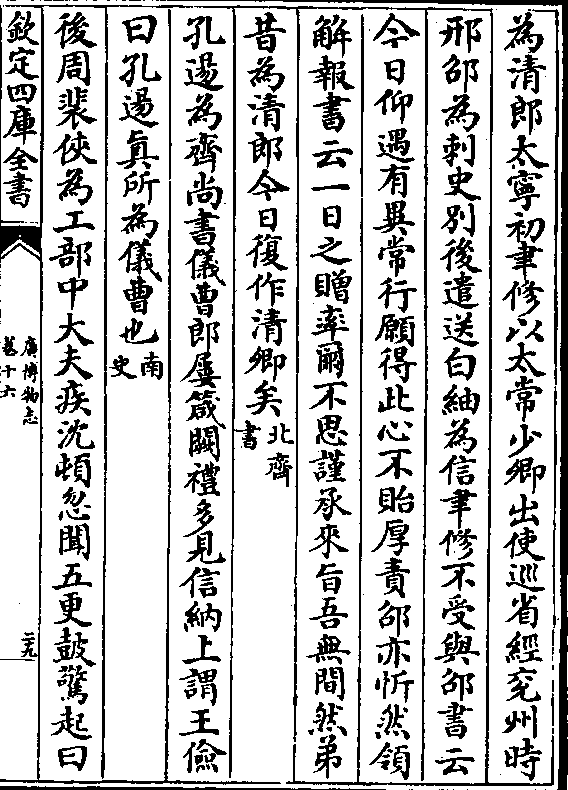 為清郎太寧初聿修以太常少卿出使巡省經兖州時
邢邵為刺史别後遣送白紬為信聿修不受與邵書云
今日仰遇有異常行願得此心不貽厚責邵亦忻然領
解報書云一日之贈率爾不思謹承來旨吾無間然弟
昔為清郎今日復作清卿矣北齊書
孔逷為齊尚書儀曹郎屢箴闕禮多見信納上謂王儉
曰孔逷真所為儀曹也南史
後周裴俠為工部中大夫疾沈頓忽聞五更鼓驚起曰
欽定四庫全書
廣博物志
卷十六
二九